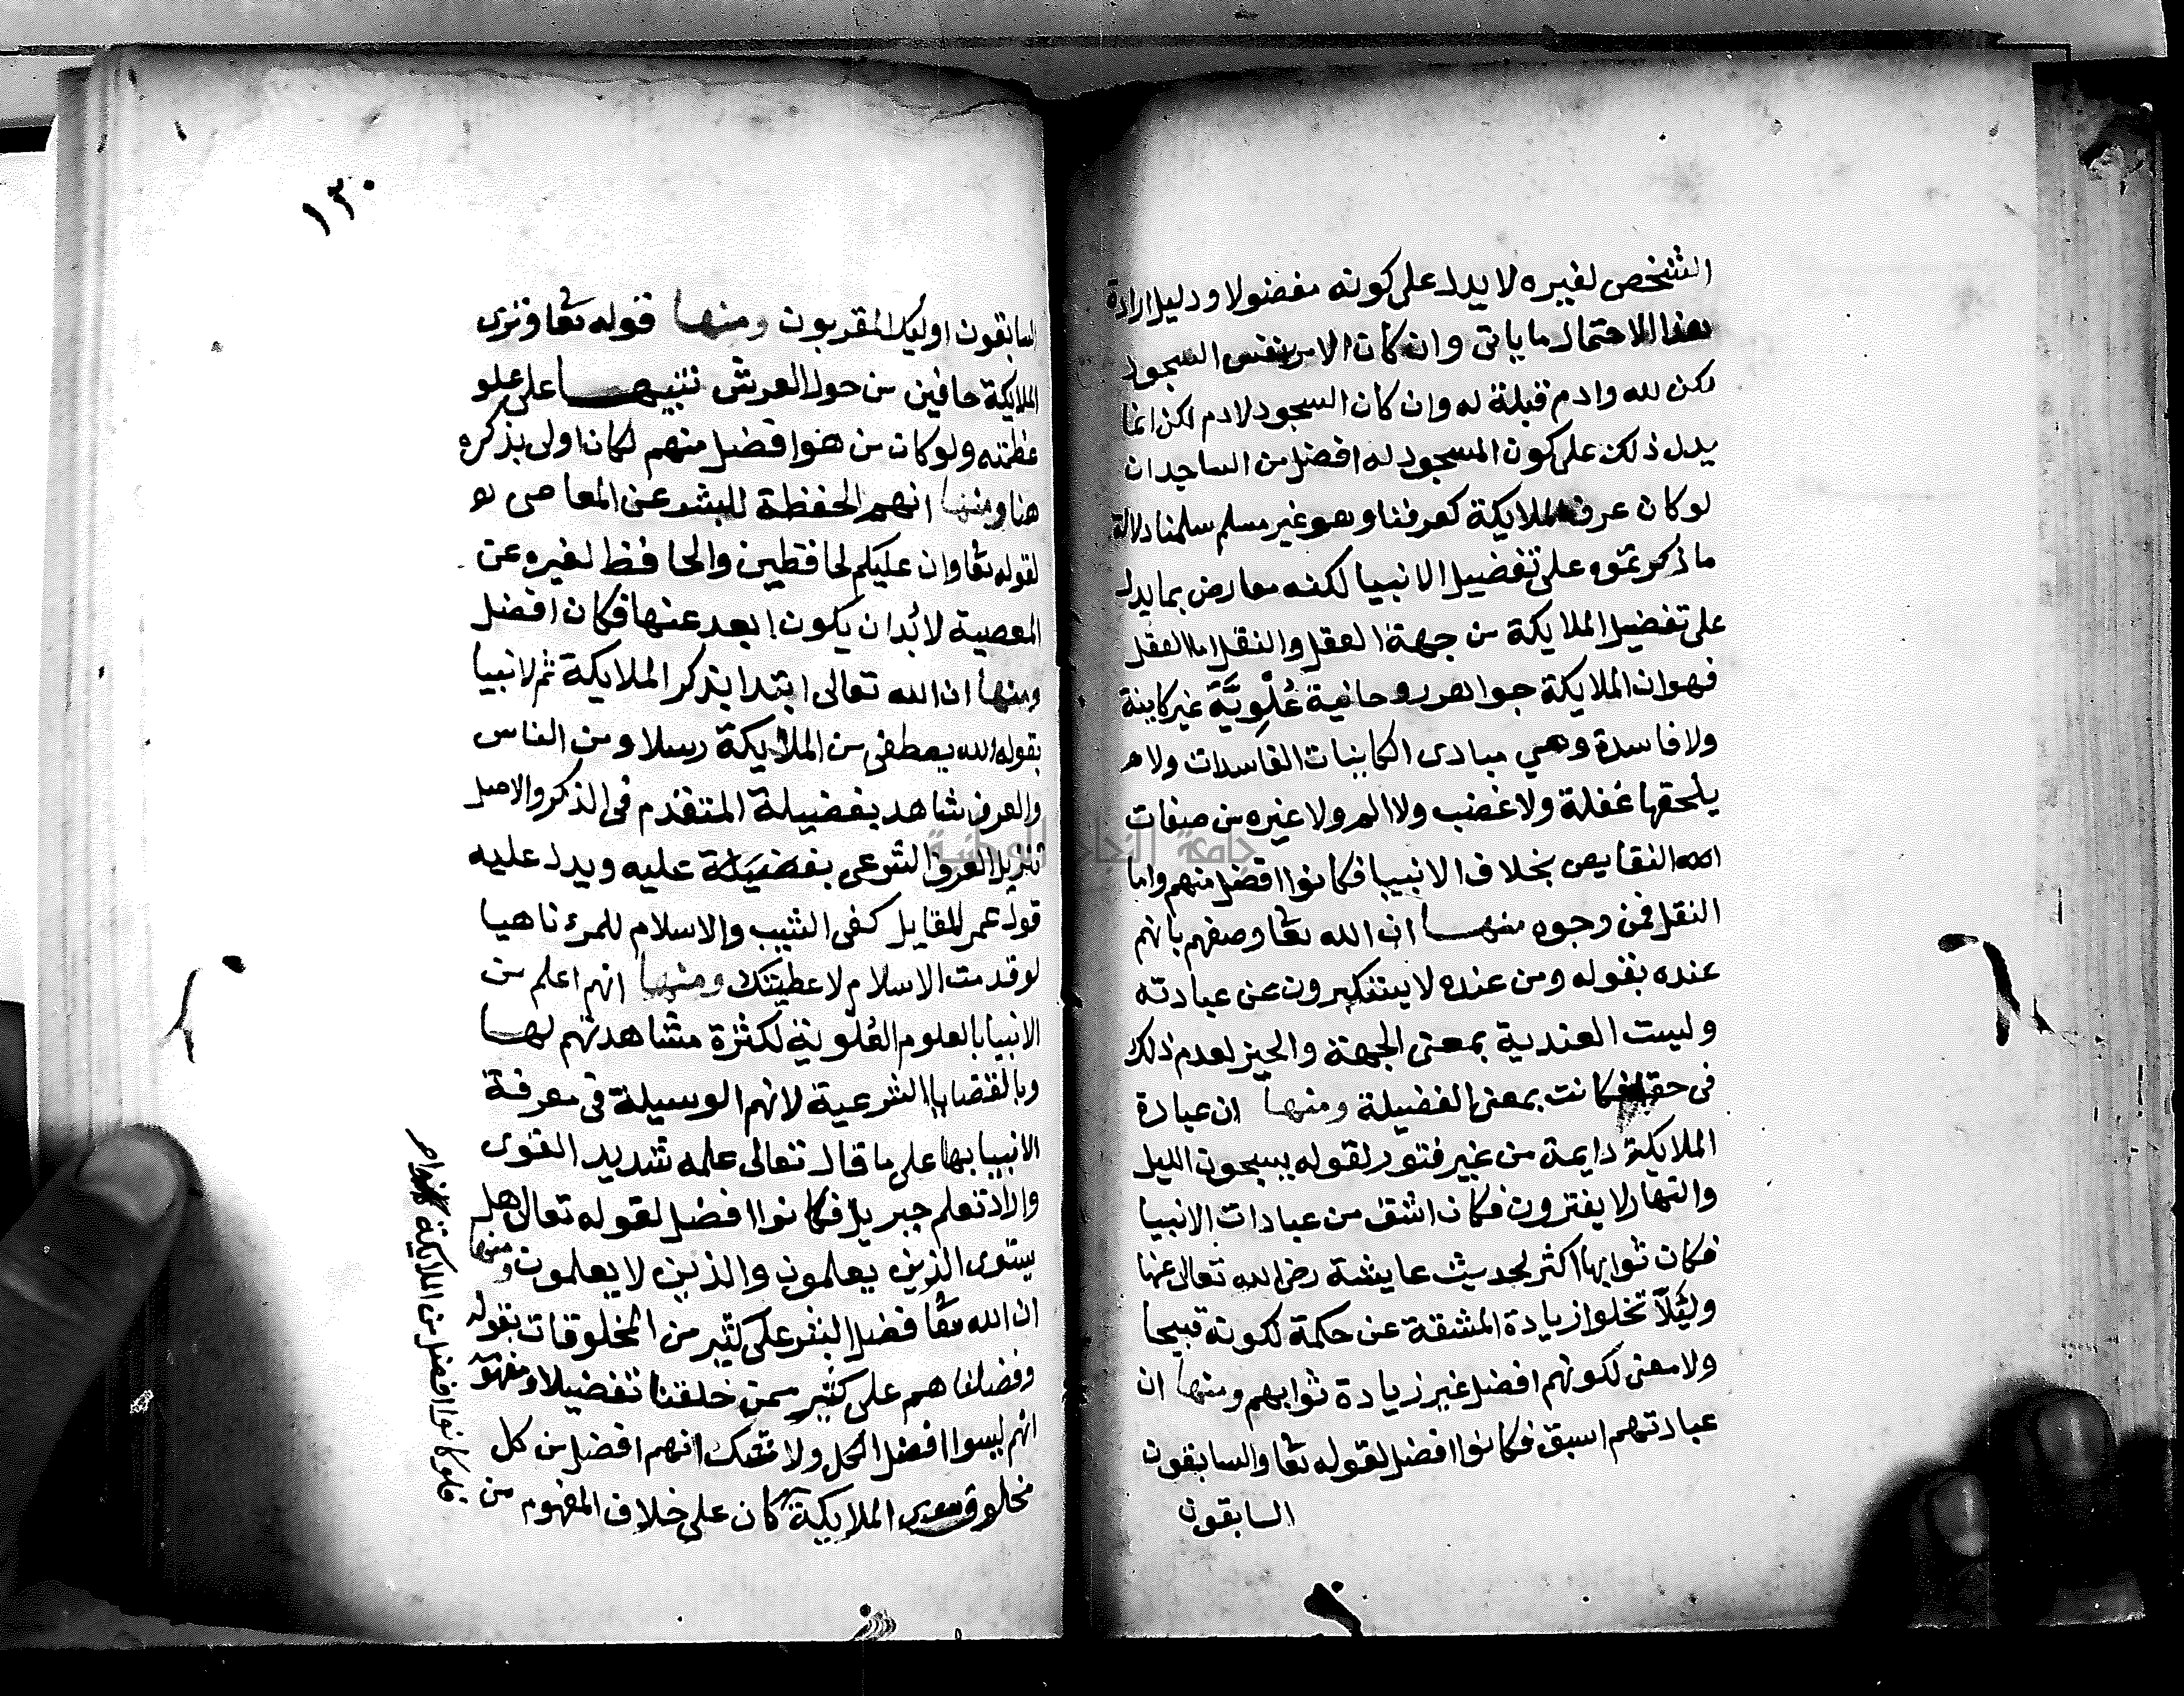 الشخص لغيره لا يدل على كونه مفضولا ودليل ارادة
هذا الاحتمال ما ياتى وان كان الامر بنفس السجود
لكن لله وادم قبلة له وان كان السجود لادم لكن انما
يدل ذلك على كون المسجود له افضل من الساجد ان
لو كان عرف الملايكة كعرفنا وهو غير مسلم سلمنا دلالة
ما ذكرتموه على تفضيل الانبيا لكنه معارض بما يدل
على تفضيل الملايكة من جهة العقل والنقل اما العقل
فهو ان الملايكة جواهر روحانية عُلْوِيَّة غير كاينة
ولا فاسدة وهي مبادى الكاينات الفاسدات ولا
يلحقها غفلة ولا غضب ولا الم ولا غيره من صفات
النقايص بخلاف الانبيا فكانوا افضل منهم واما
النقل فمن وجوه منها ان الله تعا وصفهم بانهم
عنده بقوله ومن عنده لا يستكبرون عن عبادته
وليست العندية بمعنى الجهة والحيز لعدم ذلك
فى حقه فكانت بمعنى الفضيلة ومنها ان عبادة
الملايكة دايمة من غير فتور لقوله يسبحون الليل
والنهار لا يفترون فكان اشق من عبادات الانبيا
فكان ثوابها اكثر لحديث عايشة رضى الله تعالى عنها
وليُلّا تخلوا زيادة المشقة عن حكمة لكونه قبيحا
ولا معنى لكونهم افضل غير زيادة ثوابهم ومنها ان
عبادتهم اسبق فكانوا افضل لقوله تعا والسابقون
السابقون
١٣٠
السابقون اوليك المقربون ومنها قوله تعا وترى
الملايكة حافين من حول العرش تنبيها على علو
عظمته ولو كان من هو افضل منهم لكان اولى بذكره
هنا ومنها انهم الحفظة للبشر عن المعاصى
لقوله تعا وان عليكم لحافظين والحافظ لغيره عن
المعصية لا بُد ان يكون ابعد عنها فكان افضل
ومنها ان الله تعالى ابتدا بذكر الملايكة ثم لانبيا
بقوله الله يصطفى من الملايكة رسلا ومن الناس
والعرف شاهد بفضيلة المتقدم فى الذكر والاصل
تنزيل العرف الشرعى بفضيلة عليه ويدل عليه
قول عمر للقايل كفى الشيب والاسلام للمرء ناهيا
لو قدمت الاسلام لاعطيتك ومنها انهم اعلم من
الانبيا بالعلوم العُلوية لكثرة مشاهدتهم لها
وبالقضايا الشرعية لانهم الوسيلة فى معرفة
الانبيا بها على ما قال تعالى علمه شديد القوى
واراد تعلم جبريل فكانوا افضل لقوله تعالى هل
يستوى الذين يعلمون والذين لا يعلمون ومنها
ان الله تعا فضل البشر على كثير من المخلوقات بقوله
وفضلناهم على كثير ممن خلقنا تفضيلا ومفهومه
انهم ليسوا افضل الكل ولا شك انهم افضل من كل
مخلوق سوى الملايكة كان على خلاف المفهوم من
فلو كانوا افضل من الملايكة